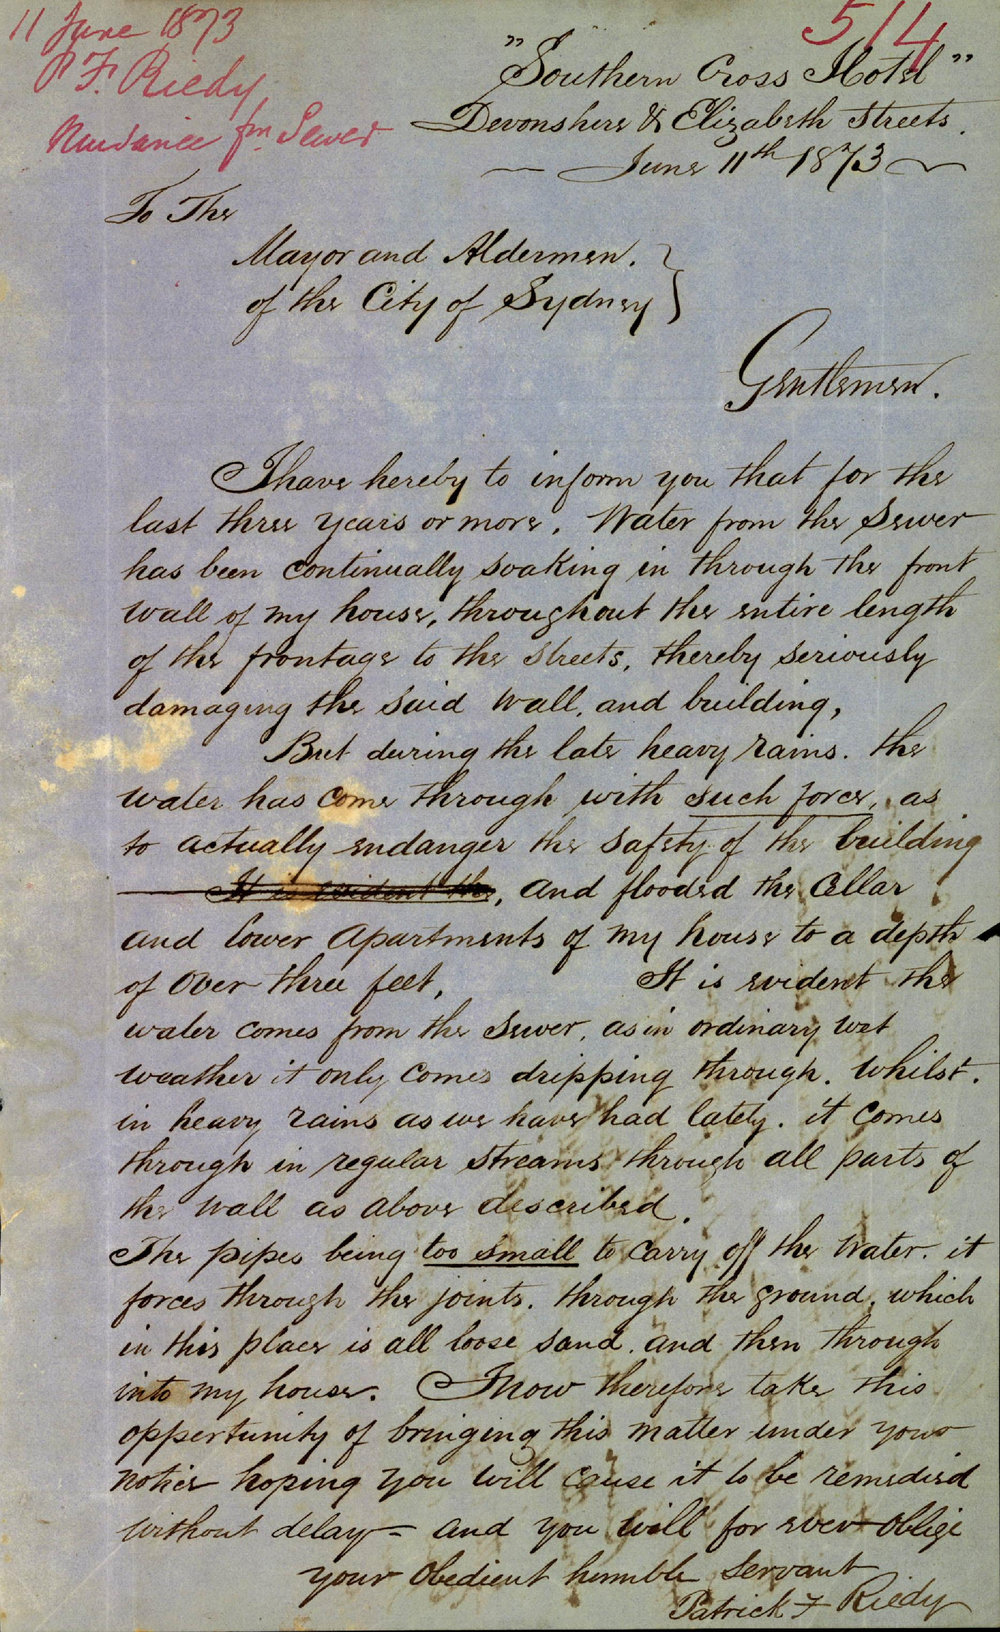 11 June 1873
P F. Riedy
Nuisance fm Sewer
514
"Southern Cross Hotel"
Devonshire & Elizabeth Streets.
June 11th 1873
To The
Mayor and Aldermen.
of the City of Sydney
Gentlemen.
I have hereby to inform you that for the
last three years or more. Water from the Sewer
has been continually soaking in through the front
wall of my house, throughout the entire length
of the frontage to the streets, thereby seriously
damaging the said wall, and building,
But during the late heavy rains. the
water has come through with such force, as
to actually endanger the safety of the building
It is evident the, and flooded the Cellar
and lower apartments of my house to a depth
of over three feet, It is evident the
water comes from the Sewer, as in ordinary wet
weather it only comes dripping through. Whilst.
in heavy rains as we have had lately. it comes
through in regular streams through all parts of
the wall as above described.
The pipes being too small to carry off the water. it
forces through the joints. through the ground, which
in this place is all loose sand. and then through
into my house. I now therefore take this
oppertunity of bringing this matter under your
notice hoping you will cause it to be remedied
without delay - and you will for ever oblige
your obedient humble servant
Patrick F Riedy